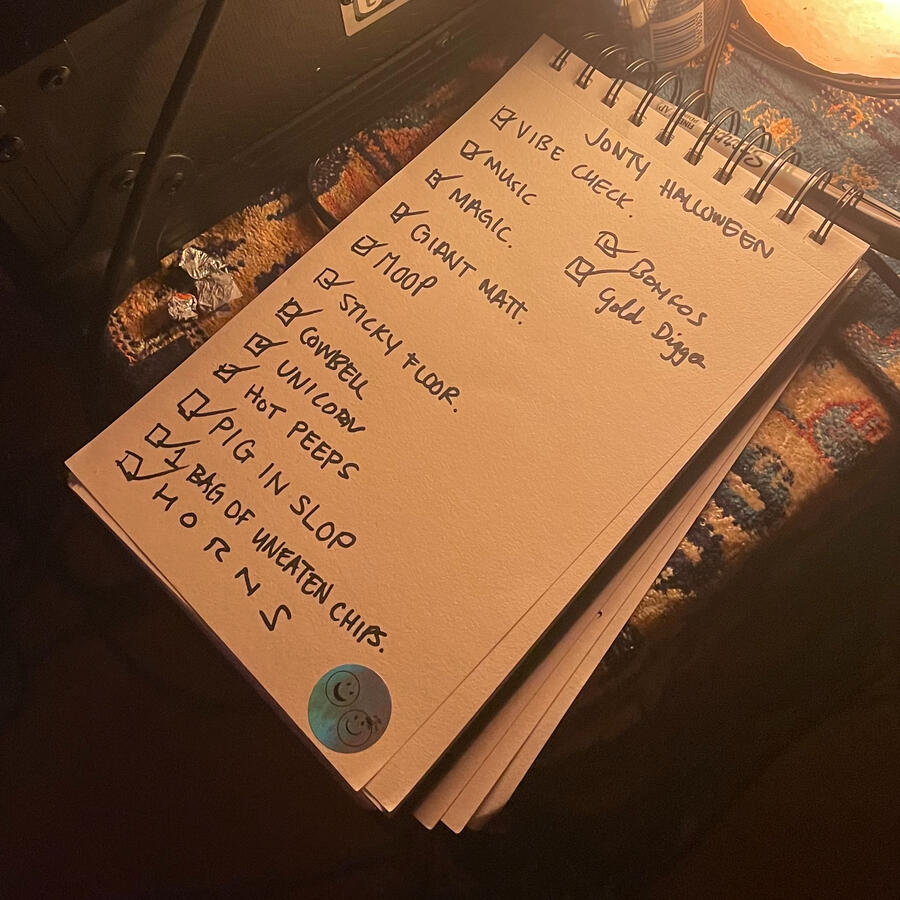 JONTY HALLOWEEN
☑ VIBE CHECK.
☑ MUSIC
☑ MAGIC.
☑ GIANT MATT.
☑ MOOP
☑ STICKY FLOOR.
☑ COWBELL
☑ UNICORN
☑ HOT PEEPS
☑ PIG IN SLOP
☑ 1 BAG OF UNEATEN CHIPS.
☑ HORNS
☑ BONGOS
☑ Gold Digga